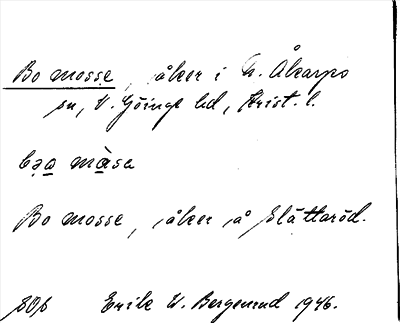 Bo mosse, åker i N. Åkarps
sn, V. Göinge hd, Krist. l.
bəa màsa
Bo mosse, åker på Slättaröd.
Erik W. Bergerud 1946.